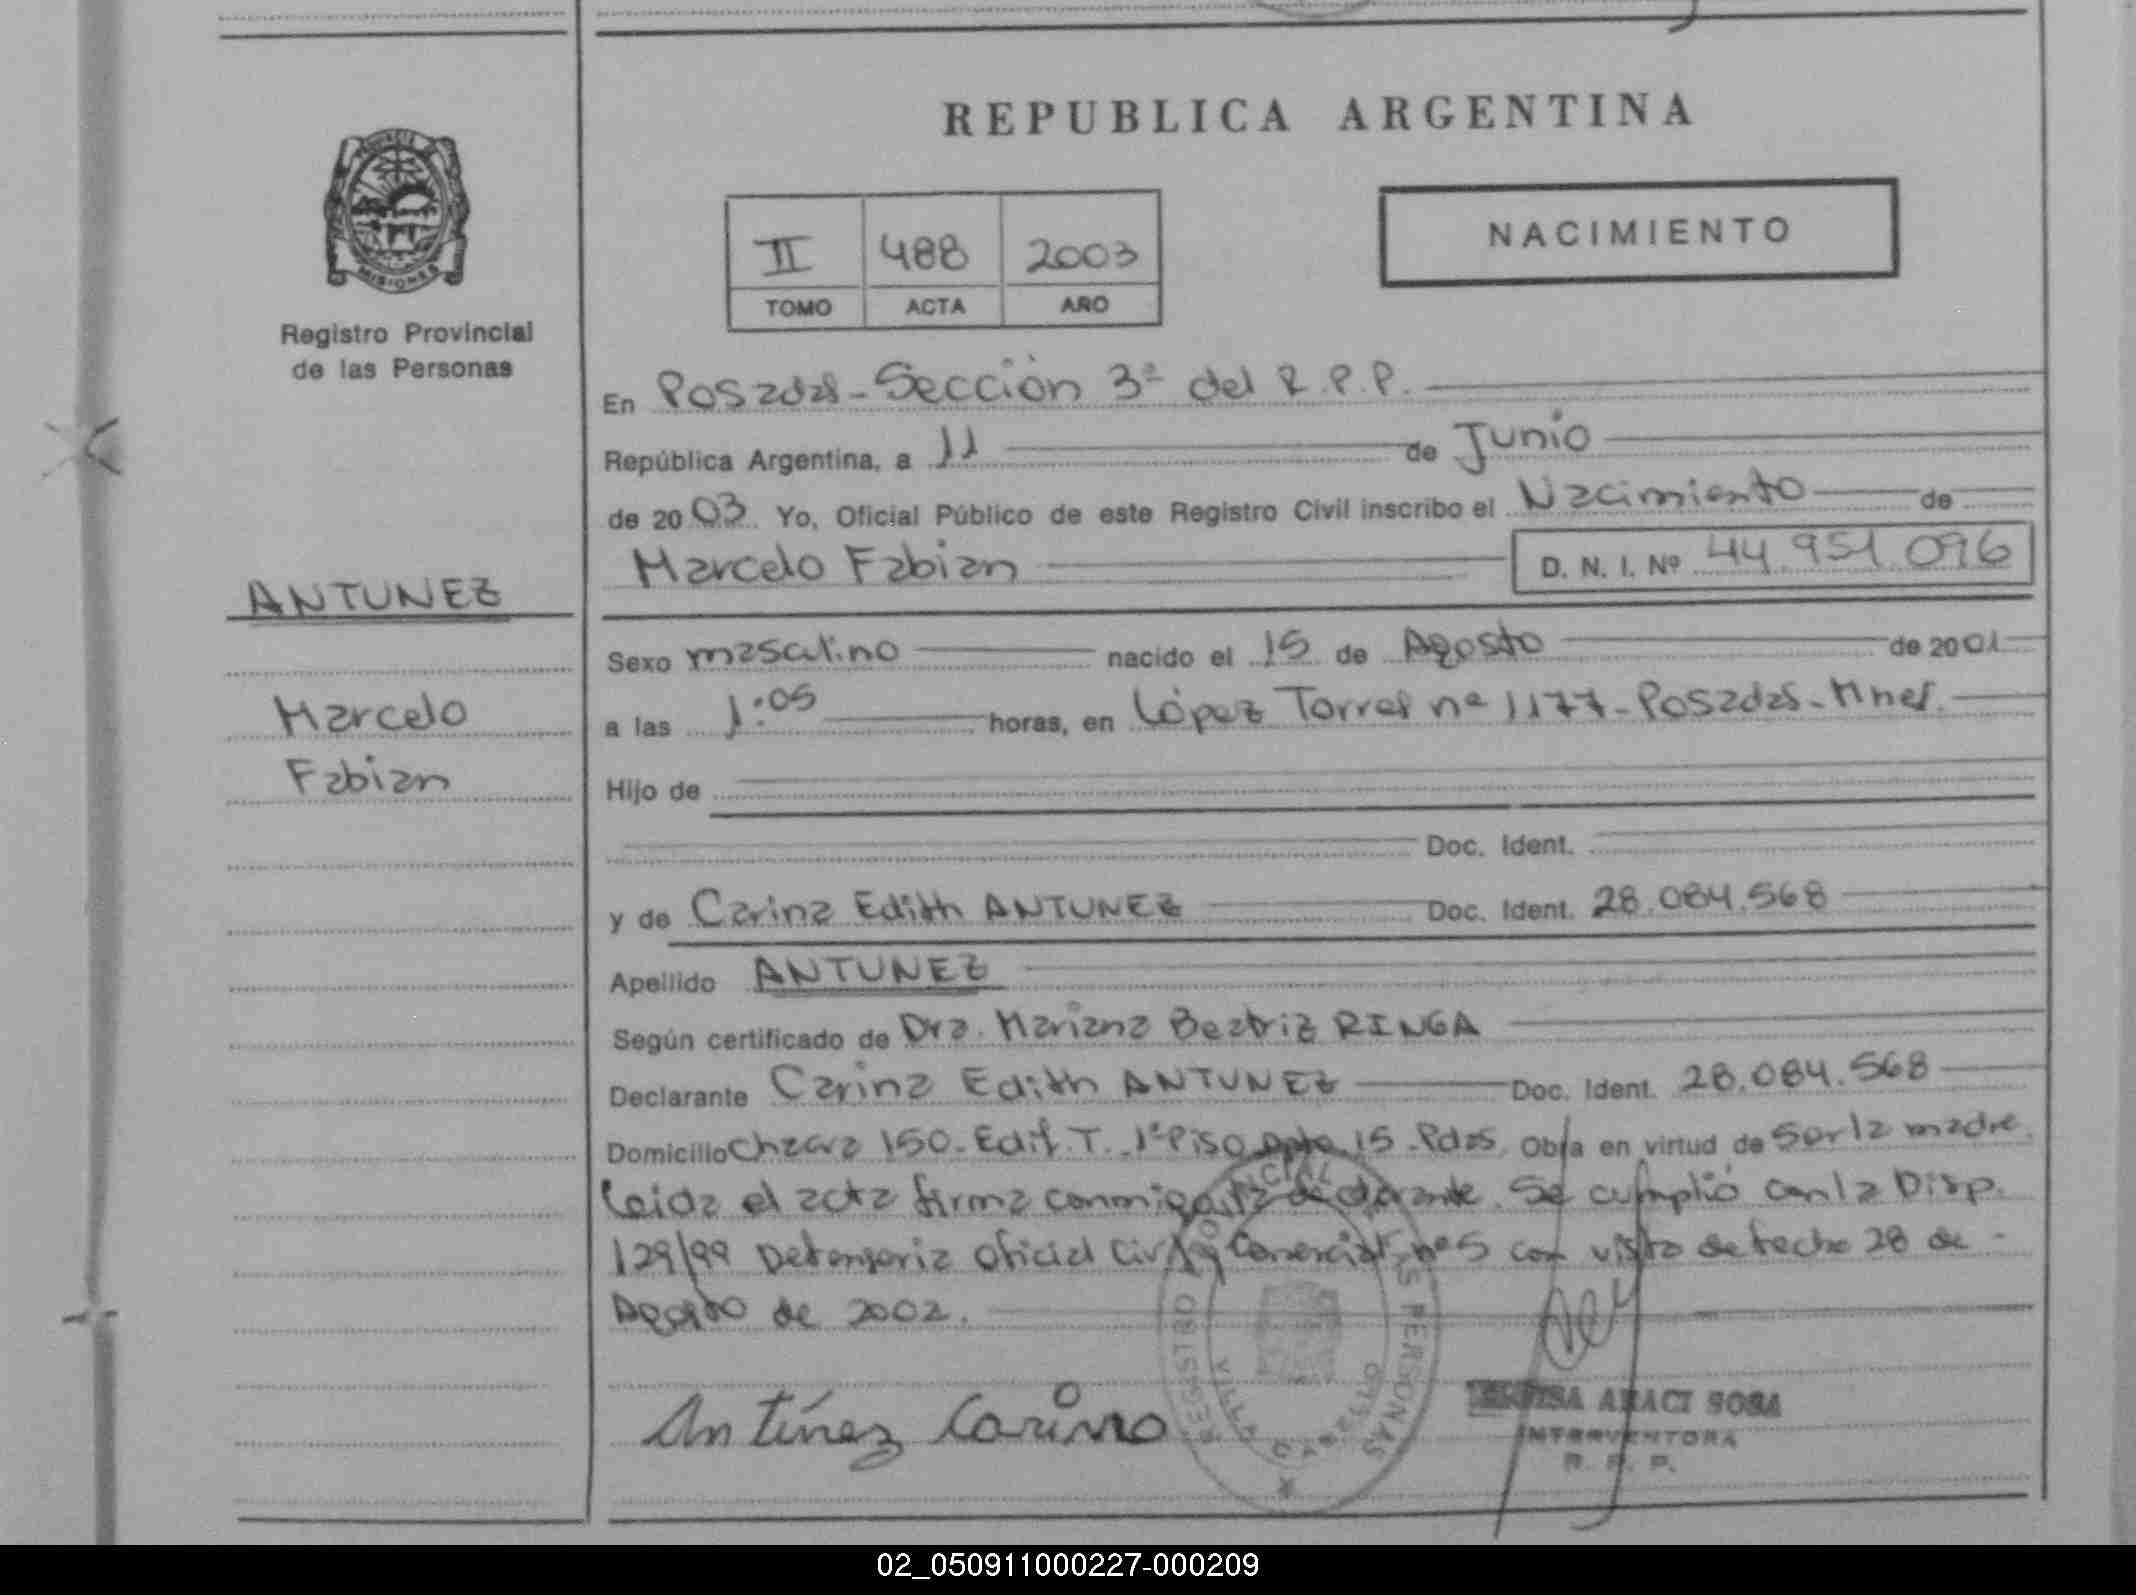 REPUBLICA ARGENTINA
PROVINCIA
MISIONES
Registro Provincial
de las Personas
II 488 2003
TOMO ACTA AÑO
NACIMIENTO
En Posadas - Sección 3ª del R.P.P.
República Argentina, a 11 de Junio
de 2003. Yo, Oficial Público de este Registro Civil inscribo el Nacimiento de
Marcelo Fabian D. N. I. Nº 44.951.096
ANTUNEZ
Marcelo
Fabian
Sexo masculino nacido el 15 de Agosto de 2001
a las 1:05 horas, en López Torres nº 1177 - Posadas - Mnes.
Hijo de
Doc. Ident.
y de Carina Edith ANTUNEZ Doc. Ident. 28.084.568
Apellido ANTUNEZ
Según certificado de Dra. Mariana Beatriz RINGA
Declarante Carina Edith ANTUNEZ Doc. Ident. 28.084.568
Domicilio Chacra 150 - Edif. T. 1º Piso Dpto 15 - Pdas. Obra en virtud de ser la madre.
Leida el acta firma conmigo la declarante. Se cumplió con la Disp.
129/99 Defensoria Oficial Civil y Comercial nº 5 con vista de fecha 28 de -
Agosto de 2002.
Antúnez Carina
REGISTRO PROVINCIAL DE LAS PERSONAS
VILLA CABELLO
ARACI SOSA
INTERVENTORA
R. P. P.
02_050911000227-000209